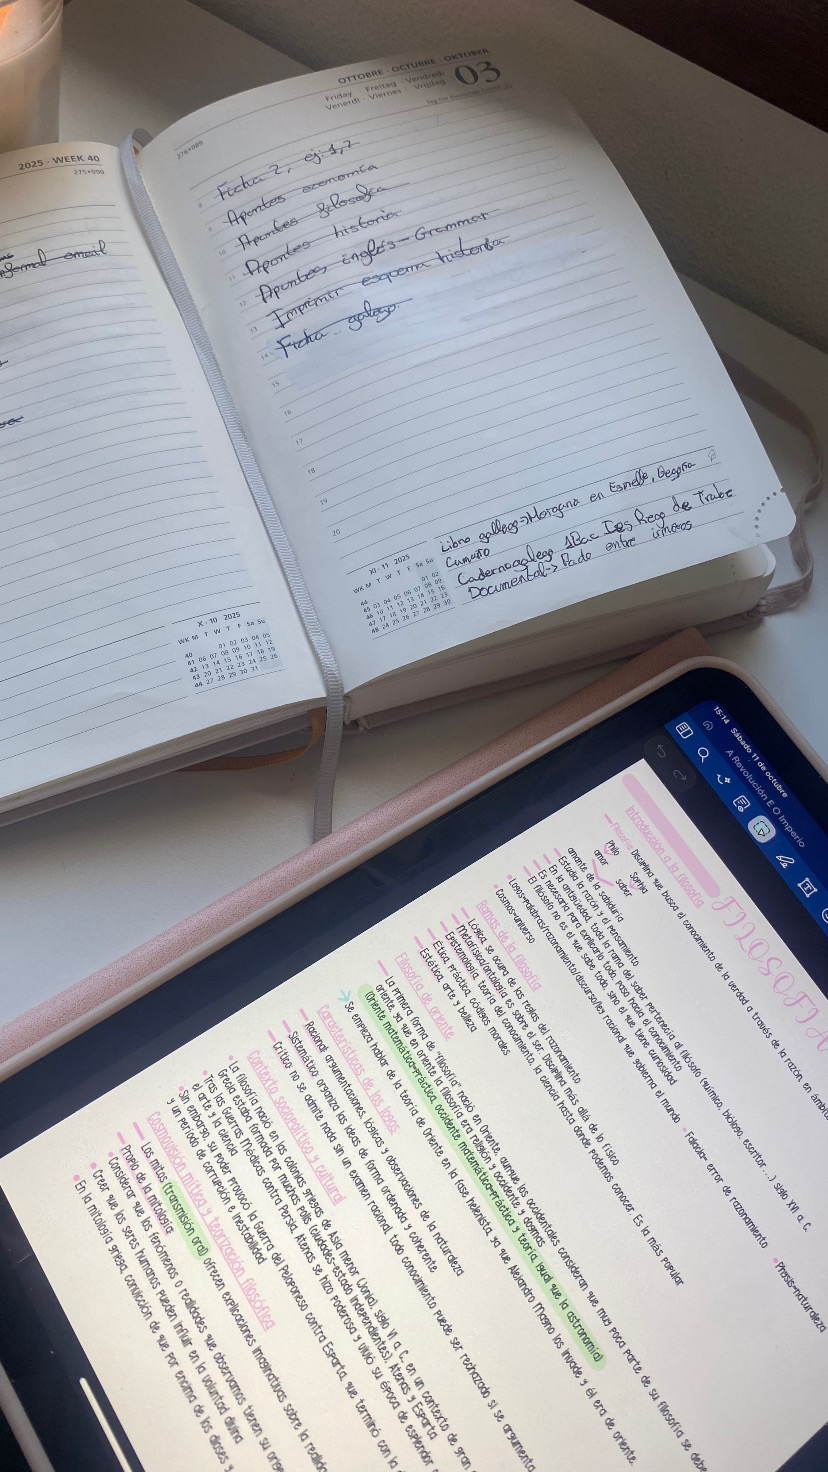 2025 · WEEK 40
275+090
informal email
X · 10 2025
WK M T W T F Sa Su
40 01 02 03 04 05
41 06 07 08 09 10 11 12
42 13 14 15 16 17 18 19
43 20 21 22 23 24 25 26
44 27 28 29 30 31
OTTOBRE · OCTUBRE · OKTOBER
Friday Freitag Vendredi
Venerdì Viernes Vrijdag
03
276+089
Ficha 2, ej: 1,2
8
Apuntes economía
9
Apuntes filosofía
10
Apuntes historia
11
Apuntes inglés - Grammar
12
Imprimir esquema historia
13
Ficha galego
14
15
16
17
18
19
20
XI · 11 2025
WK M T W T F Sa Su
44 01 02
45 03 04 05 06 07 08 09
46 10 11 12 13 14 15 16
47 17 18 19 20 21 22 23
48 24 25 26 27 28 29 30
Libro gallego → Morgana en Esmelle, Begoña
Caamaño
Caderno galego 1Bac Ies Rego de Trabe
Documental → Pado entre
15:14 Sábado 11 de octubre
A Revolución E O Imperio
FILOSOFIA
Introducción a la filosofía
Filosofía: Disciplina que busca el conocimiento de la verdad a través de la razón, en
Philo Sophya
amor saber
amante de la sabiduría
Estudia la razón y el pensamiento
En la antigüedad, toda la rama del saber pertenecía al filósofo (químico, biólogo, escritor...) siglo XVI a. C.
Es necesaria para explicarlo todo, paso hacia el conocimiento
El filósofo no es el que sabe todo, sino el que tiene curiosidad
Logos=palabras/razonamiento/discurso/ley racional que gobierna el mundo • Falacia= error de razonamiento • Physis=naturaleza
Cosmos=universo
Ramas de la filosofía
Lógica: se ocupa de las reglas del razonamiento
Metafísica/ontología: es sobre el ser. Disciplina más allá de lo físico
Epistemología: teoría del conocimiento, la ciencia hasta donde podemos conocer. Es la más popular
Ética: práctica, códigos morales
Estética: arte y belleza
Filosofía de oriente
La primera forma de "filosofía" nació en Oriente, aunque los occidentales consideran que muy poca parte de su filosofía se debe
oriente, ya que en oriente la filosofía era religión y occidente y dogmas
(Oriente matemática=práctica, occidente matemática=práctica y teoría, igual que la astronomía)
Se empieza hablar de la teoría de oriente en la fase helenista, ya que Alejandro Magno los invade y él era de oriente.
Características de los logos
Racional: argumentaciones, lógicas y observaciones de la naturaleza
Sistemático: organiza las ideas de forma ordenada y coherente
Crítico: no se admite nada sin un examen racional, todo conocimiento puede ser rechazado si se argumenta
Contexto sociopolítico y cultural
La filosofía nació en las colonias griegas de Asia menor (Jonia), siglo VI a. C. en un contexto de gran
Grecia estaba formada por muchas polis (ciudades-estado independientes), Atenas y Esparta
Tras las Guerras Médicas contra Persia, Atenas se hizo poderosa y vivió su época de esplendor
el arte y la ciencia
Sin embargo, su poder provocó la Guerra del Peloponeso contra Esparta, que terminó con la
y un período de corrupción e inestabilidad
Cosmovisión mítica y teorización filosófica
Los mitos (transmisión oral) ofrecen explicaciones imaginativas sobre la
Propio de la mitología:
Considerar que los fenómenos o realidades que observamos tienen su
Creer que los seres humanos pueden influir en la voluntad divina
En la mitología griega, convicción de que, por encima de los dioses y